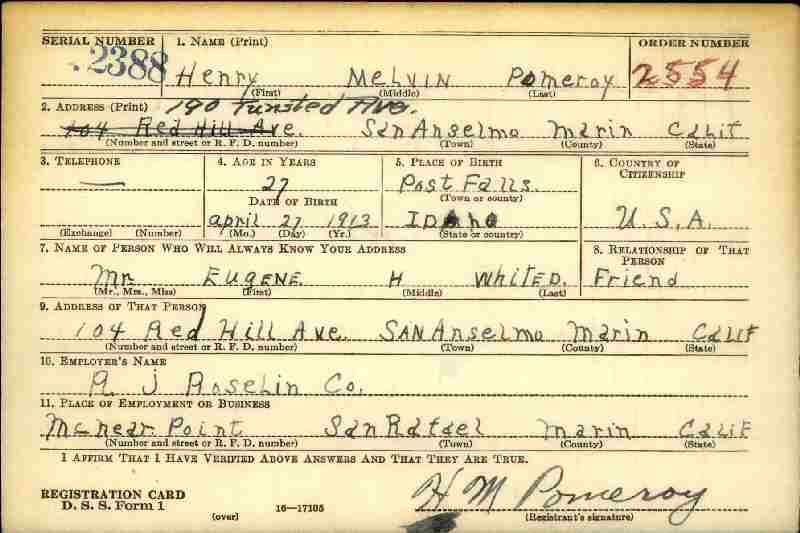 SERIAL NUMBER 1. NAME (Print) ORDER NUMBER
2388 Henry MELVIN Pomeroy 2554
(First) (Middle) (Last)
2. ADDRESS (Print) 190 Funsted Ave.
104 Red Hill Ave. San Anselmo Marin Calif
(Number and street or R. F. D. number) (Town) (County) (State)
3. TELEPHONE 4. AGE IN YEARS 5. PLACE OF BIRTH 6. COUNTRY OF CITIZENSHIP
— 27 Post Falls.
DATE OF BIRTH (Town or county)
april 27 1913 IDAho U.S.A.
(Exchange) (Number) (Mo.) (Day) (Yr.) (State or country)
7. NAME OF PERSON WHO WILL ALWAYS KNOW YOUR ADDRESS 8. RELATIONSHIP OF THAT PERSON
Mr. EUGENE. H WHITED. Friend
(Mr., Mrs., Miss) (First) (Middle) (Last)
9. ADDRESS OF THAT PERSON
104 Red Hill Ave. SAN Anselmo Marin Calif
(Number and street or R. F. D. number) (Town) (County) (State)
10. EMPLOYER'S NAME
R J Co.
11. PLACE OF EMPLOYMENT OR BUSINESS
Mcnear Point San Rafael Marin Calif
(Number and street or R. F. D. number) (Town) (County) (State)
I AFFIRM THAT I HAVE VERIFIED ABOVE ANSWERS AND THAT THEY ARE TRUE.
REGISTRATION CARD
D. S. S. Form 1 (over) 16—17105
H M Pomeroy
(Registrant's signature)